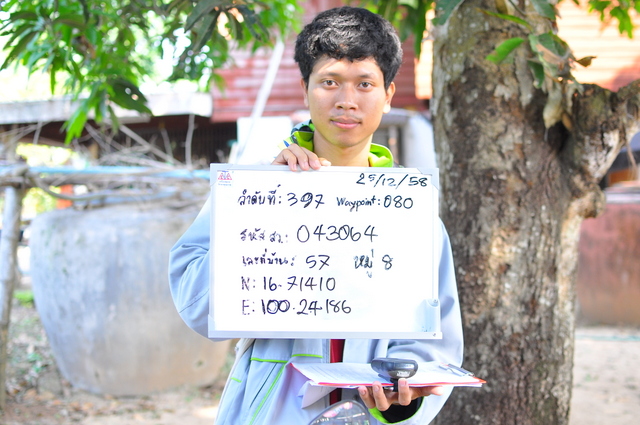 25/12/58
ลำดับที่: 397 Waypoint: 080
รหัส สว.: 043064
เลขที่บ้าน: 57 หมู่ 8
N: 16.71410
E: 100.24186